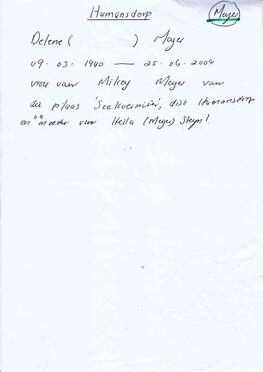 Humansdorp
Meyer
Delene ( ) Meyer
09. 03. 1940 — 25. 06. 2009
vrou van Mikey Meyer van
die plaas 'Seekoerivier', dist Humansdorp
en moeder van Heila (Meyer) Steyn!